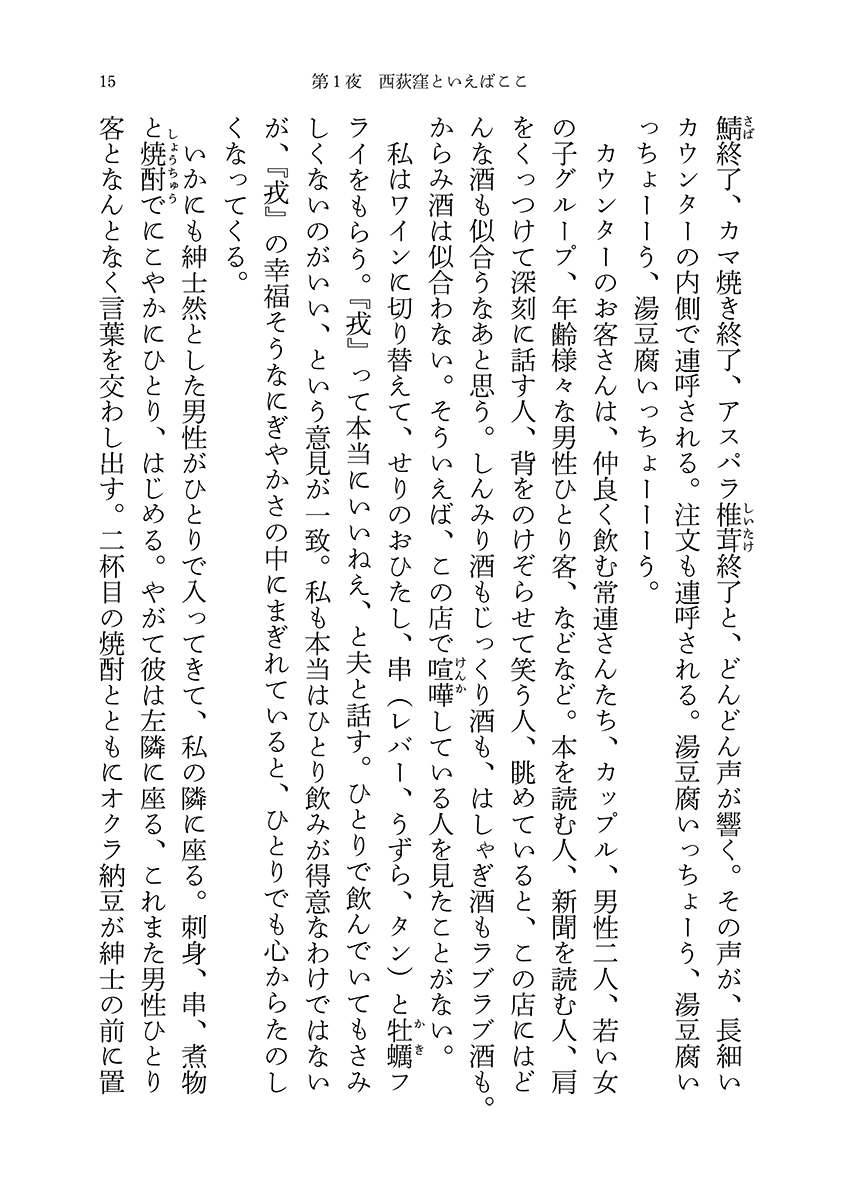 15
第1夜　西荻窪といえばここ
鯖終了、カマ焼き終了、アスパラ椎茸終了と、どんどん声が響く。その声が、長細い
さば
しいたけ
カウンターの内側で連呼される。注文も連呼される。湯豆腐いっちょーう、湯豆腐い
っちょーーう、湯豆腐いっちょーーーう。
カウンターのお客さんは、仲良く飲む常連さんたち、カップル、男性二人、若い女
の子グループ、年齢様々な男性ひとり客、などなど。本を読む人、新聞を読む人、肩
をくっつけて深刻に話す人、背をのけぞらせて笑う人、眺めていると、この店にはど
んな酒も似合うなあと思う。しんみり酒もじっくり酒も、はしゃぎ酒もラブラブ酒も。
からみ酒は似合わない。そういえば、この店で喧嘩している人を見たことがない。
けんか
私はワインに切り替えて、せりのおひたし、串（レバー、うずら、タン）と牡蠣フ
かき
ライをもらう。『戎』って本当にいいねえ、と夫と話す。ひとりで飲んでいてもさみ
しくないのがいい、という意見が一致。私も本当はひとり飲みが得意なわけではない
が、『戎』の幸福そうなにぎやかさの中にまぎれていると、ひとりでも心からたのし
くなってくる。
いかにも紳士然とした男性がひとりで入ってきて、私の隣に座る。刺身、串、煮物
と焼酎でにこやかにひとり、はじめる。やがて彼は左隣に座る、これまた男性ひとり
しょうちゅう
客となんとなく言葉を交わし出す。二杯目の焼酎とともにオクラ納豆が紳士の前に置